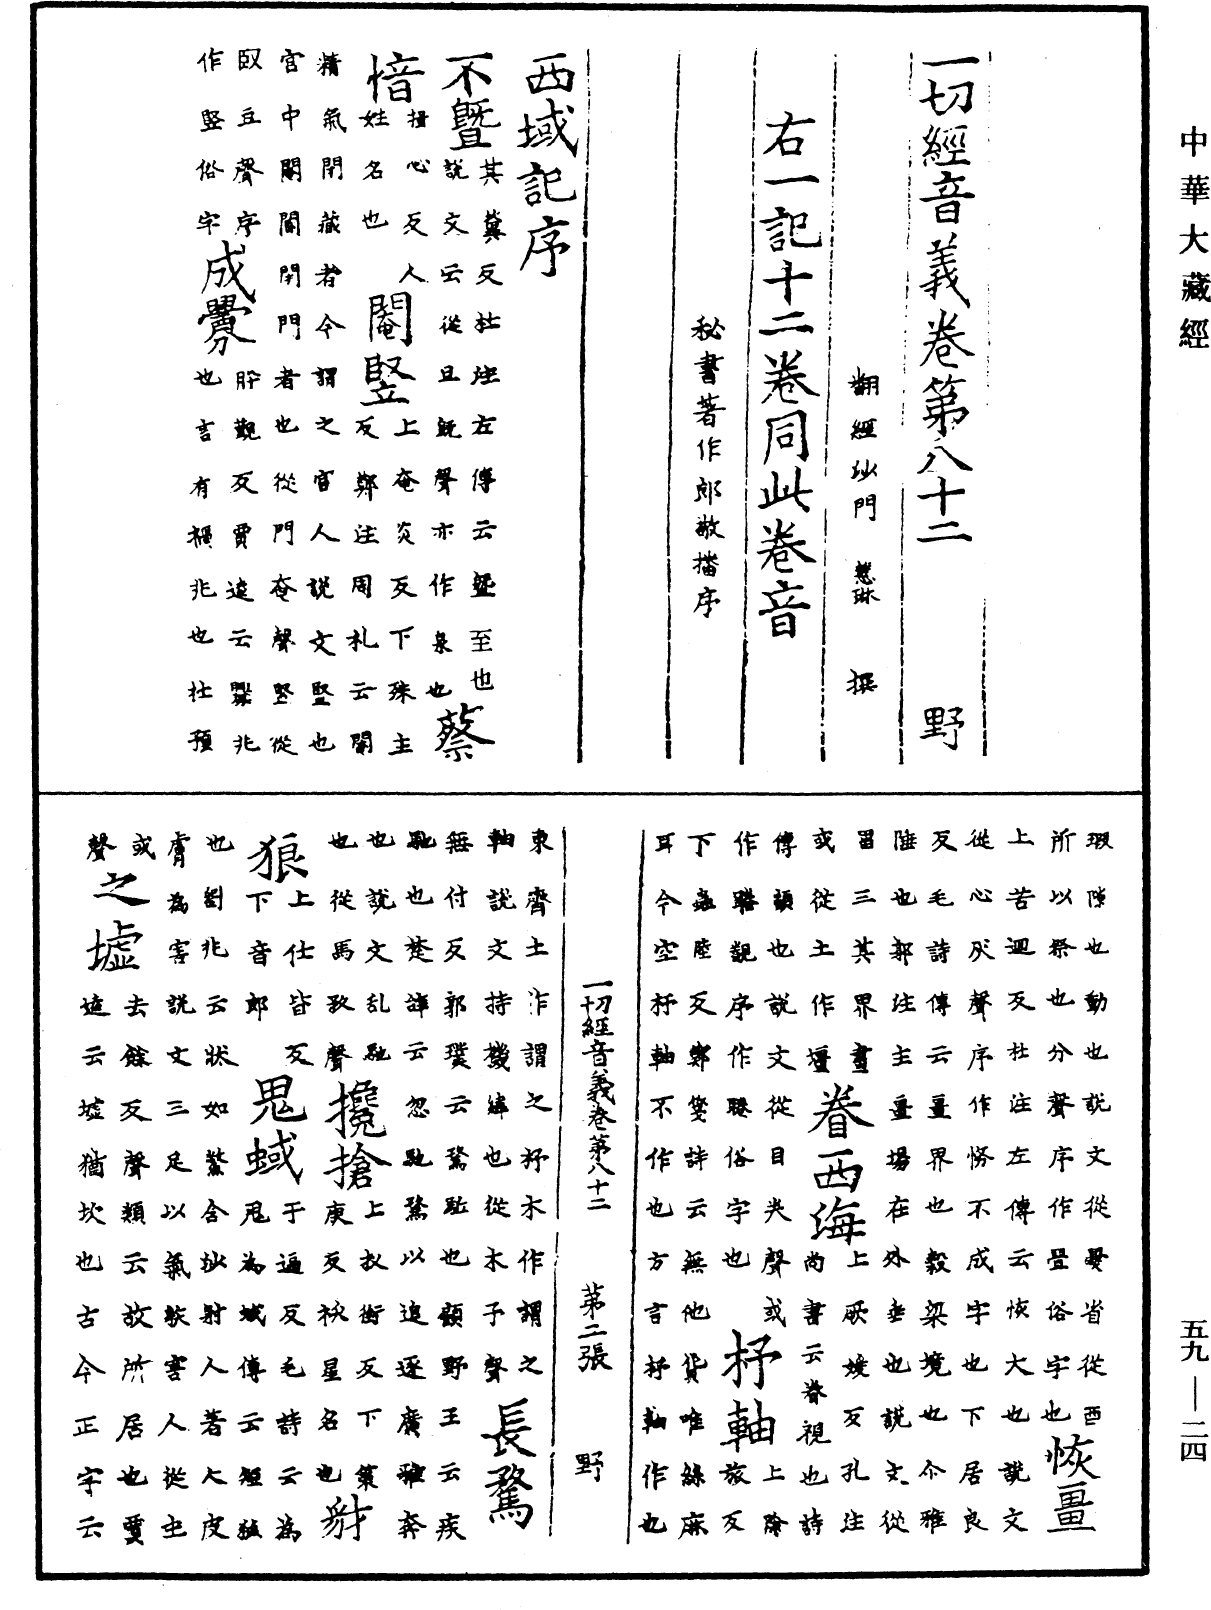 中華大藏經
一切經音義卷第八十二　野
翻經沙門　慧琳　撰
右一記十二卷同此卷音
秘書著作郎敬播序
西域記序
不曁其冀反杜注左傳云曁至也
說文云從旦旣聲亦作泉也蔡
愔揖心反人
姓名也閹豎上奄炎反下殊主
反鄭注周礼云閹
精氣閉藏者今謂之宦人說文豎也
宮中閹閽閉門者也從門奄聲豎從
臤豆聲序
作竪俗字成釁肸覲反賈逵云釁兆
也言有禍兆也杜預
瑕隙也動也說文從爂省從酉
所以祭也分聲序作舋俗字也恢畺
上苦迴反杜注左傳云恢大也說文
從心灰聲序作恡不成字也下居良
反毛詩傳云畺界也穀梁境也介雅
陲也郭注主畺場在外垂也說文從
畕三其界畫
或從土作壇眷西海上厥媛反孔注
尚書云眷視也詩
傳顧也說文從目𠔉聲或
作睠觀序作㬻俗字也杼軸上除
旅反
下蟲陸反鄭箋詩云無他貨唯絲麻
耳今空杼軸不作也方言杼軸作也
一切經音義卷第八十二　第二張　野
東齊土作謂之杼木作謂之
軸說文持機緯也從木予聲長騖
無付反郭璞云騖䮔也顧野王云疾
馳也楚辭云忽馳騖以追逐廣雅奔
也說文亂馳
也從馬敄聲攙搶上扠銜反下策
庚反祅星名也豺
狼上仕皆反
下音郎鬼蜮于逼反毛詩云為
鬼為蜮傳云短狐
也劉兆云狀如鱉含沙射人著人皮
膚為害說文三足以氣𣣋害人從虫
或
聲之墟去餘反聲類云故所居也賈
逵云墟猶坎也古今正字云
五九—二四